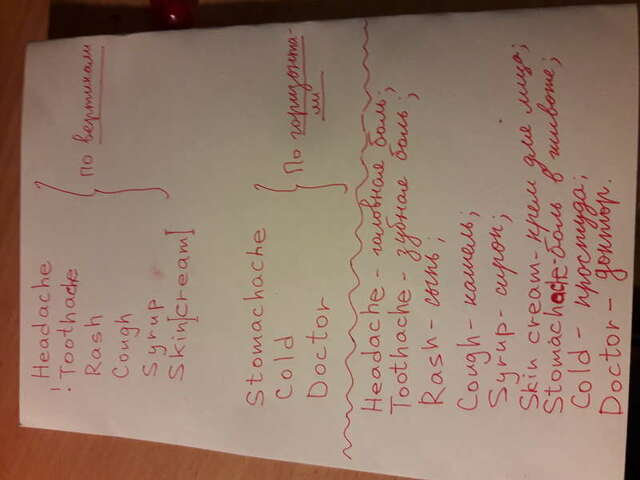 Headache
! Toothache
Rash
по вертикали
Cough
Syrup
Skin[cream]
Stomachache
Cold
По горизонта-
ли
Doctor
Headache - головная боль;
Toothache - зубная боль;
Rash - сыпь;
Cough - кашель;
Syrup - сироп;
Skin cream - крем для лица;
Stomachache - боль в животе;
Cold - простуда;
Doctor - доктор.